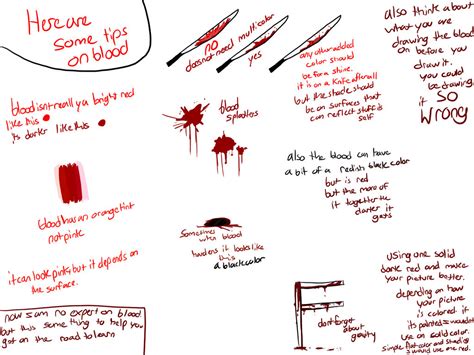 Here are
some tips
on blood
NO
doesnot need multicolor
yes
any other added
color should
be for a shine.
it is on a knife after all
but the shade should
be on surfaces that
can reflect stuff it's
self
also think about
what you are
drawing the blood
on before you
draw it.
you could
be drawing
it SO
WRONG
blood isnt really a bright red
like this
its darker like this
blood
splatters
blood has an orange tint
not pink
Sometimes
when blood
hardens it looks like
this
a black color
also the blood can have
a bit of a redish black color
but is red
but the more of
it together the
darker it
gets
it can look pink but it depends on
the surface.
now i am no expert on blood
but this some thing to help you
get on the road to learn
dont forget
about
gravity
using one solid
dark red and make
your picture better.
depending on how
your picture
is colored. if
its painted
use on solid color.